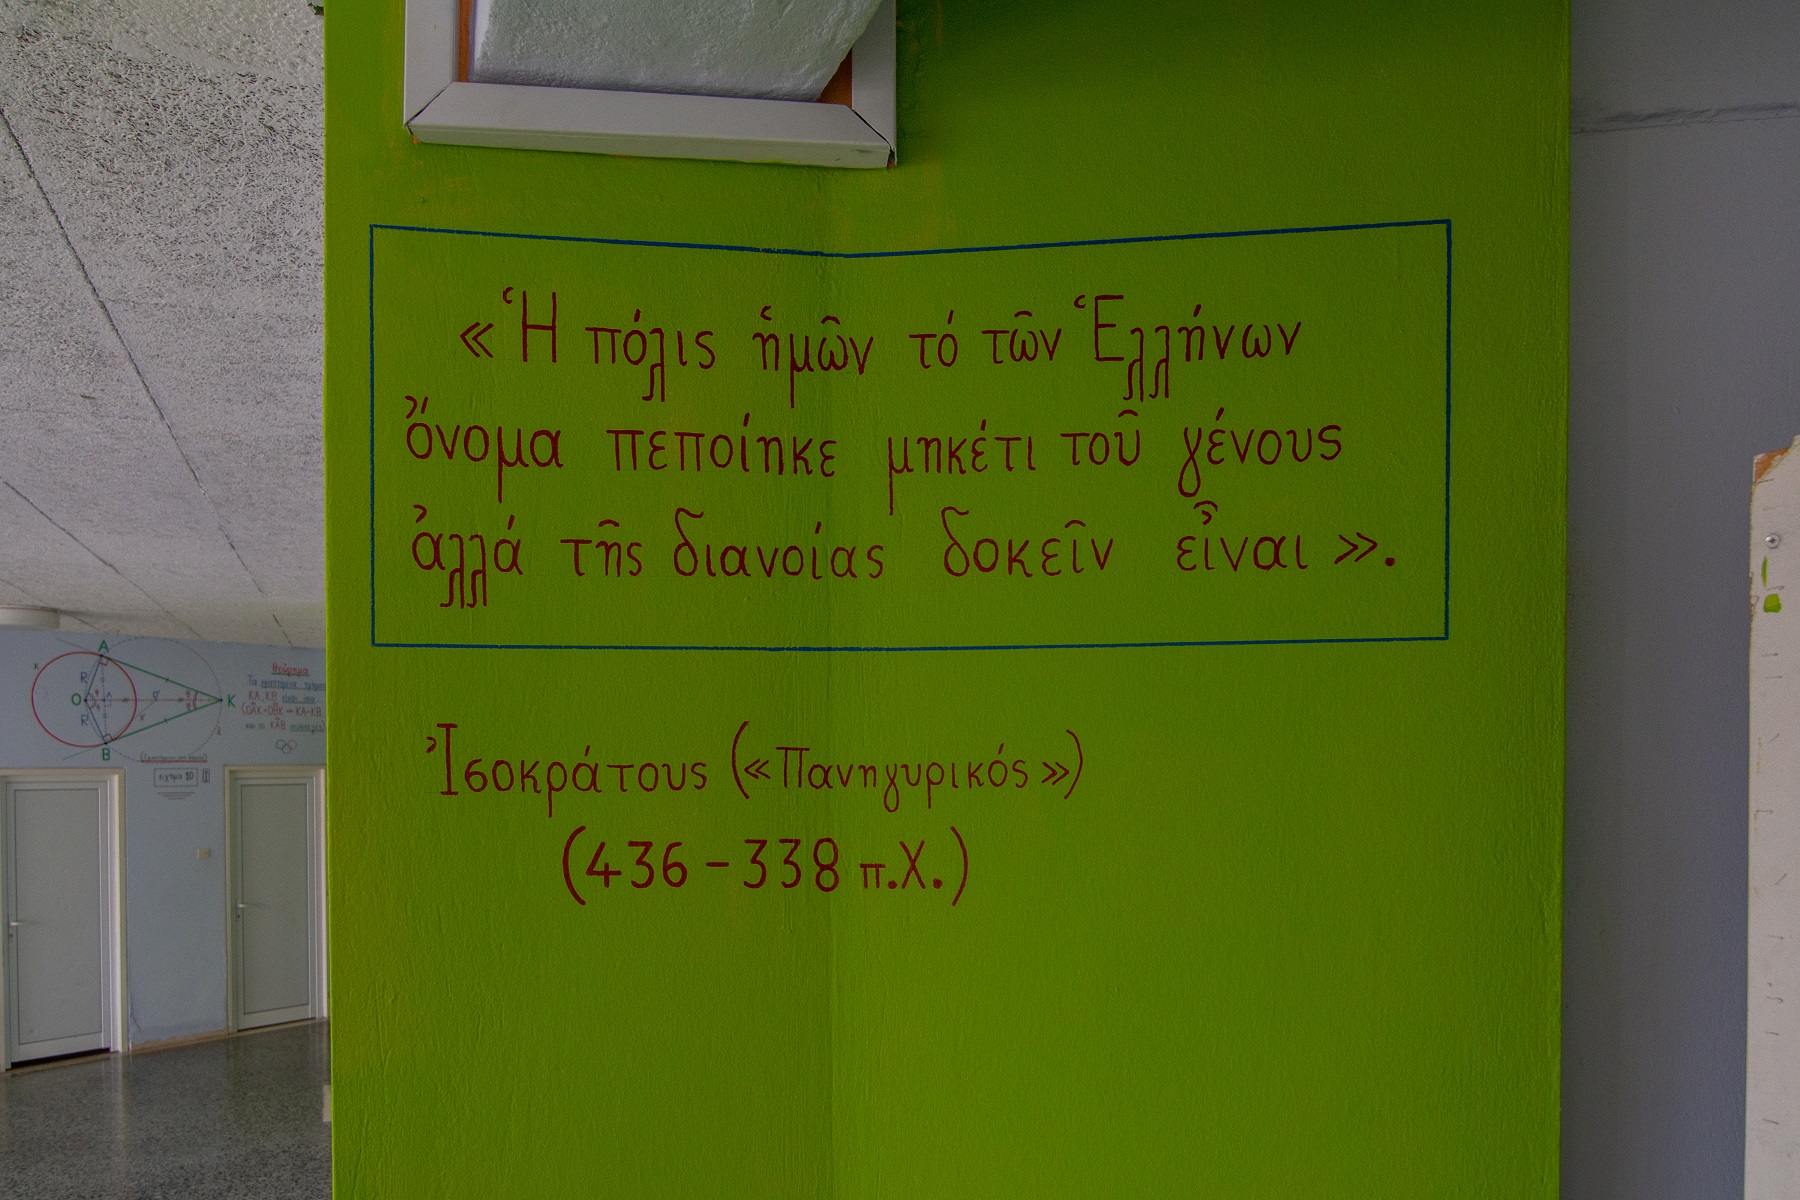 «Ἡ πόλις ἡμῶν τό τῶν Ἑλλήνων
ὄνομα πεποίηκε μηκέτι τοῦ γένους
ἀλλά τῆς διανοίας δοκεῖν εἶναι».
Ἰσοκράτους («Πανηγυρικός»)
(436-338 π.Χ.)
A
R
O
K
R
B
Θεώρημα
Τα
KA, KB
σχήμα 10